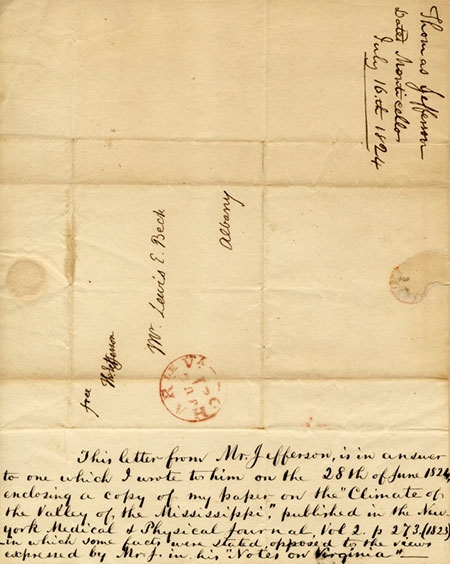 Thomas Jefferson
Dated Monticello
July 16.th 1824
Albany
Mr. Lewis E. Beck
free Th: Jefferson
CHARLE VA
JUL
21
This letter from Mr. Jefferson, is in answer
to one which I wrote to him on the 28th of June 1824,
enclosing a copy of my paper on the "Climate of
the Valley of the Mississippi", published in the New-
york Medical & Physical Journal Vol 2. p 273. (1823)
in which some facts were stated opposed to the views
expressed by Mr. J. in his "Notes on Virginia" —